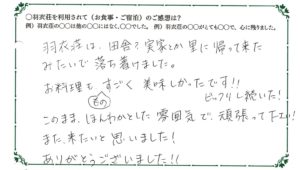 ○羽衣荘を利用されて（お食事・ご宿泊）のご感想は？
例）羽衣荘の○○は他の○○にはなく、○○でした。 例）羽衣荘の○○がとても○○で、心に残りました。
羽衣荘は、田舎？実家とか里に帰って来た
みたいで落ち着けました。
お料理も、すごく美味しかったです!!
ビックリし続いた!
このまま、ほんわかとした雰囲気で、頑張って下エい!
また、来たいと思いました!
ありがとうございました!!